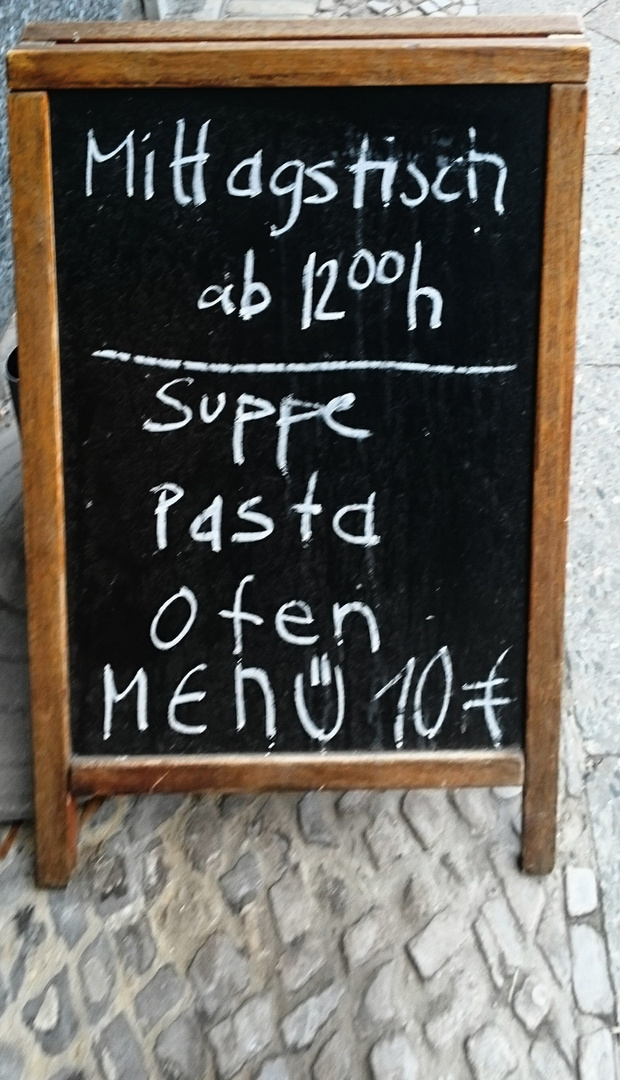 Mittagstisch
ab 12⁰⁰h
Suppe
Pasta
Ofen
MENÜ 10€